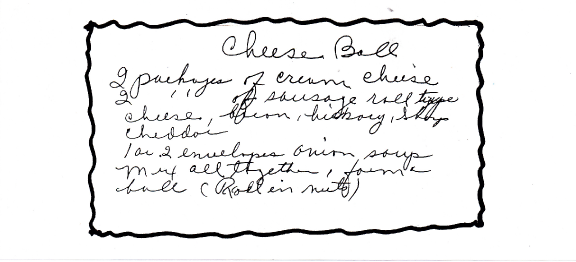 Cheese Ball
2 packages of cream cheese
2 " of sausage roll type
cheese, bacon, hickory, sharp
cheddar
1 or 2 envelopes onion soup
Mix all together, form a
ball (Roll in nuts)